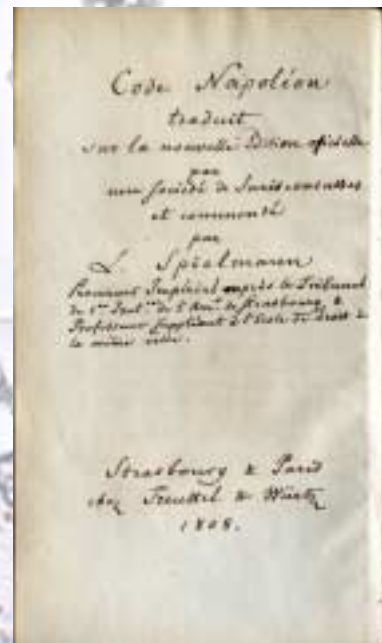 Code Napoléon
traduit
sur la nouvelle Edition officielle
par
une société de Jurisconsultes
et commenté
par
L Spielmann
Procureur Impérial auprès le Tribunal
de 1ere Inst.ce de l'Arr.t de Strasbourg &
Professeur suppléant à l'Ecole de Droit de
la même ville.
Strasbourg & Paris
chez Treuttel & Würtz
1808.